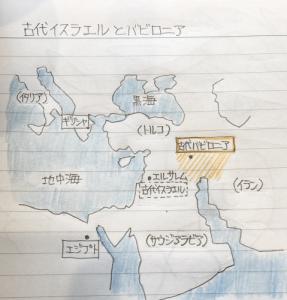 古代イスラエルとバビロニア
(イタリア)
黒海
ギリシャ
(トルコ)
古代バビロニア
地中海
エルサレム
古代イスラエル
(イラン)
エジプト
(サウジアラビア)